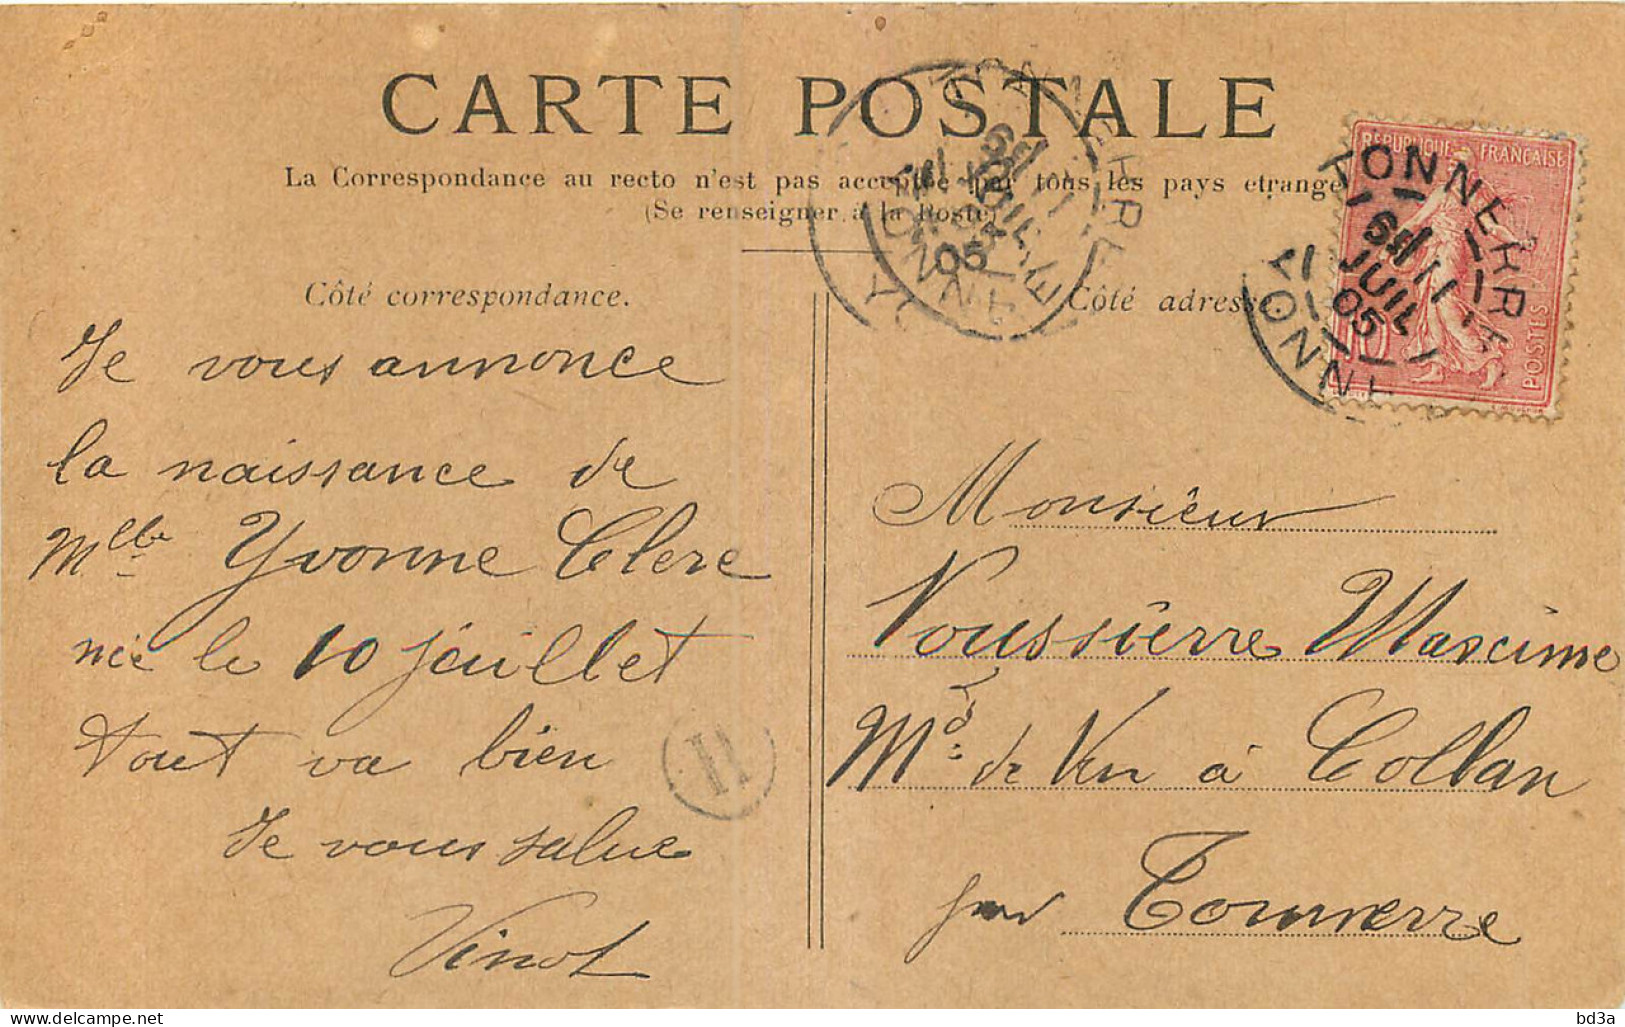 CARTE POSTALE
La Correspondance au recto n'est pas acceptée par tous les pays etrangers
(Se renseigner à la Poste)
Côté correspondance.
Je vous annonce
la naissance de
Mlle Yvonne Clerc
née le 10 juillet
tout va bien
Je vous salue
Vinot
H
Côté adresse.
Monsieur
Voussièrre Maxime
Md de Vin à Collan
par Tonnerre
RÉPUBLIQUE FRANÇAISE
POSTES
10
TONNERRE
6E
11
JUIL
05
YONNE
TONNERRE
6E
11
JUIL
05
YONNE
delcampe.net
bd3a